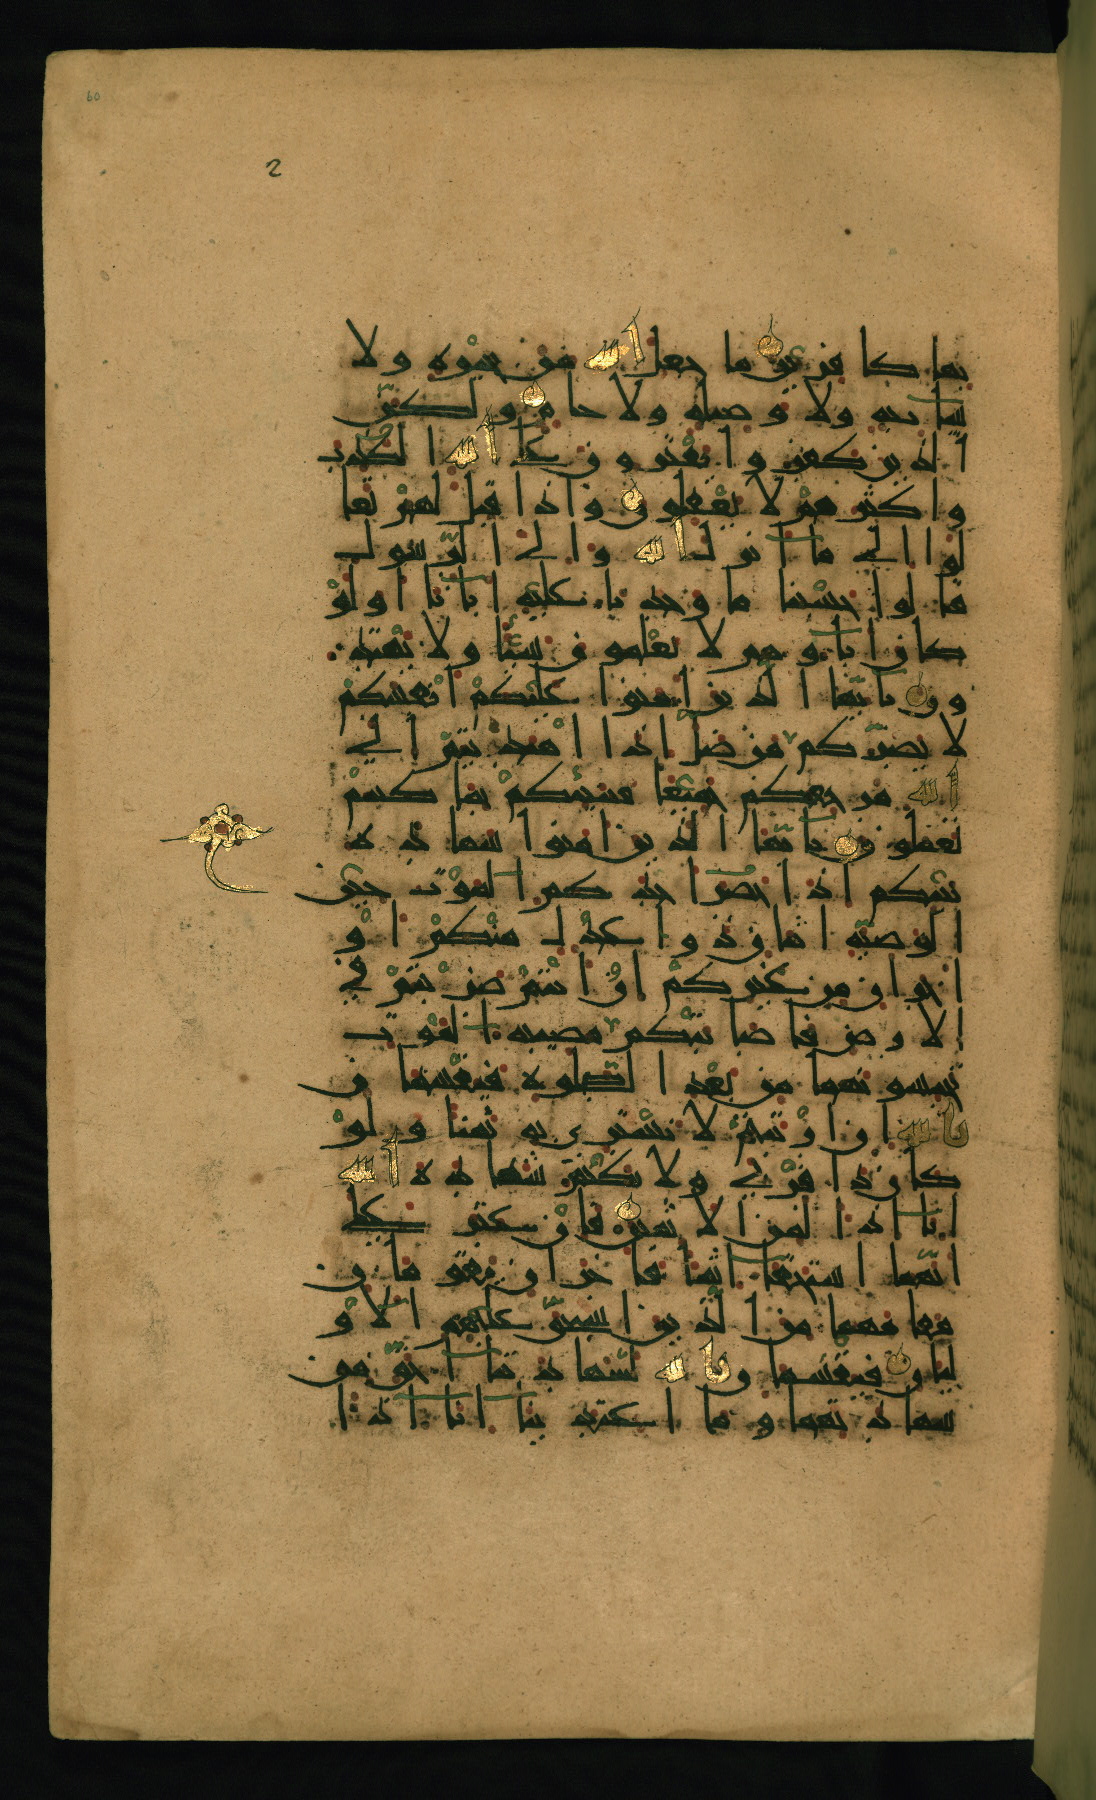 60
2
بها كافرين ما جعل الله من بحيرة ولا
سائبة ولا وصيلة ولا حام ولكن
الذين كفروا يفترون على الله الكذب
واكثرهم لا يعقلون واذا قيل لهم تعا
لوا الى ما انزل الله والى الرسول
قالوا حسبنا ما وجدنا عليه اباءنا اولو
كان اباوهم لا يعلمون شيئا ولا يهتد
ون يايها الذين امنوا عليكم انفسكم
لا يضركم من ضل اذا اهتديتم الى
الله مرجعكم جميعا فينبئكم بما كنتم
تعملون يايها الذين امنوا شهادة
بينكم اذا حضر احدكم الموت حين
الوصية اثنان ذوا عدل منكم او
اخران من غيركم ان انتم ضربتم في
الارض فاصابتكم مصيبة الموت
تحبسونهما من بعد الصلوة فيقسمان
بالله ان ارتبتم لا نشتري به ثمنا ولو
كان ذا قربى ولا نكتم شهادة الله
انا اذا لمن الاثمين فان عثر على
انهما استحقا اثما فاخران يقومان
مقامهما من الذين استحق عليهم الاو
ليان فيقسمان بالله لشهادتنا احق من
شهادتهما وما اعتدينا انا اذا